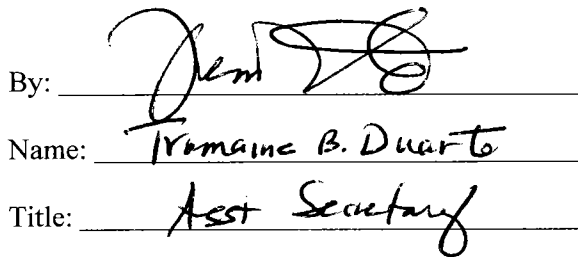 By:
Name: Tramaine B. Duarte
Title: Asst Secretary